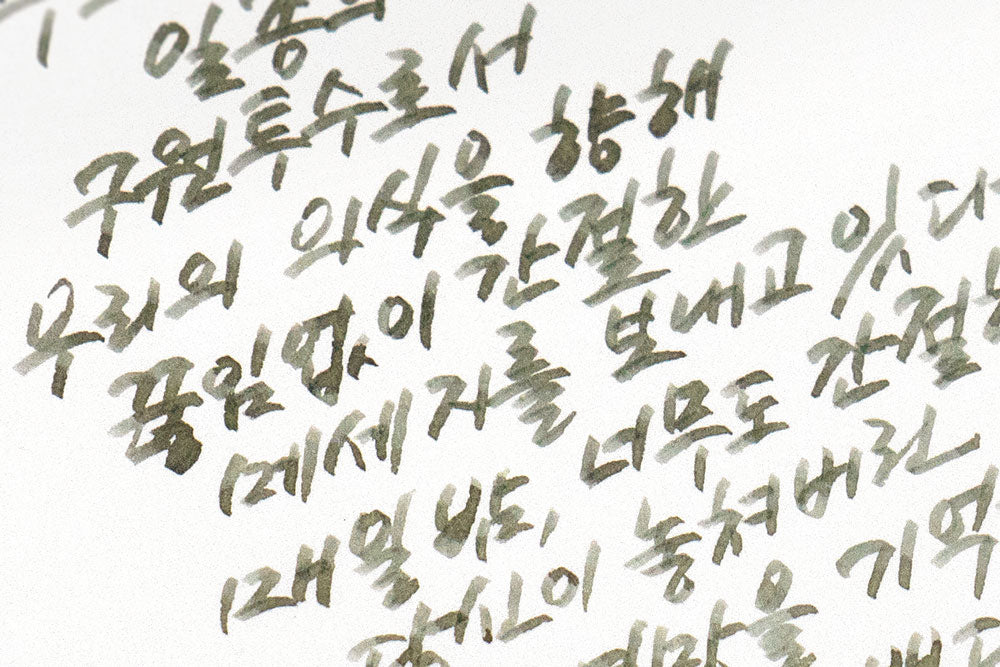 일종의
구원투수로서
우리의 의식을 향해
끊임없이 간절한
메세지를 보내고 있다
매일 밤, 너무도 간절
당신이 놓쳐버린
기억